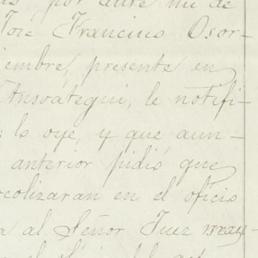 por ante mi de
José Francisco Osor-
iembre, presente en
Ansoátegui, le notifi-
lo oyé, y que aun-
anterior pidió que
ocolizaran en el oficio
a al Señor Juez